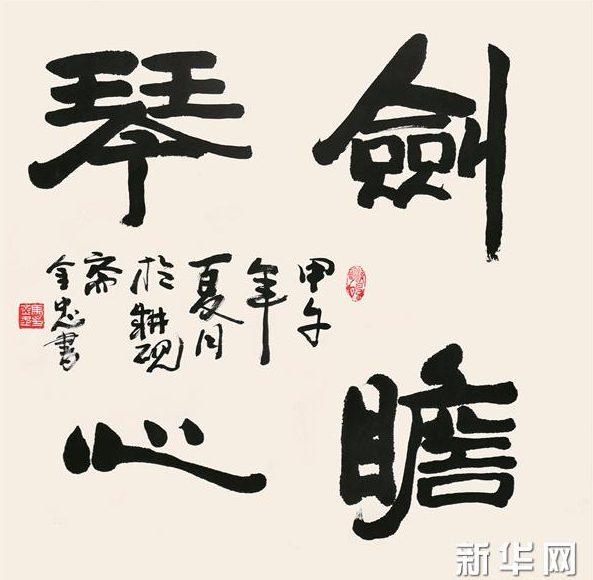 劍膽
琴心
甲午
年
夏月
於耕硯
齋
金忠書
新华网